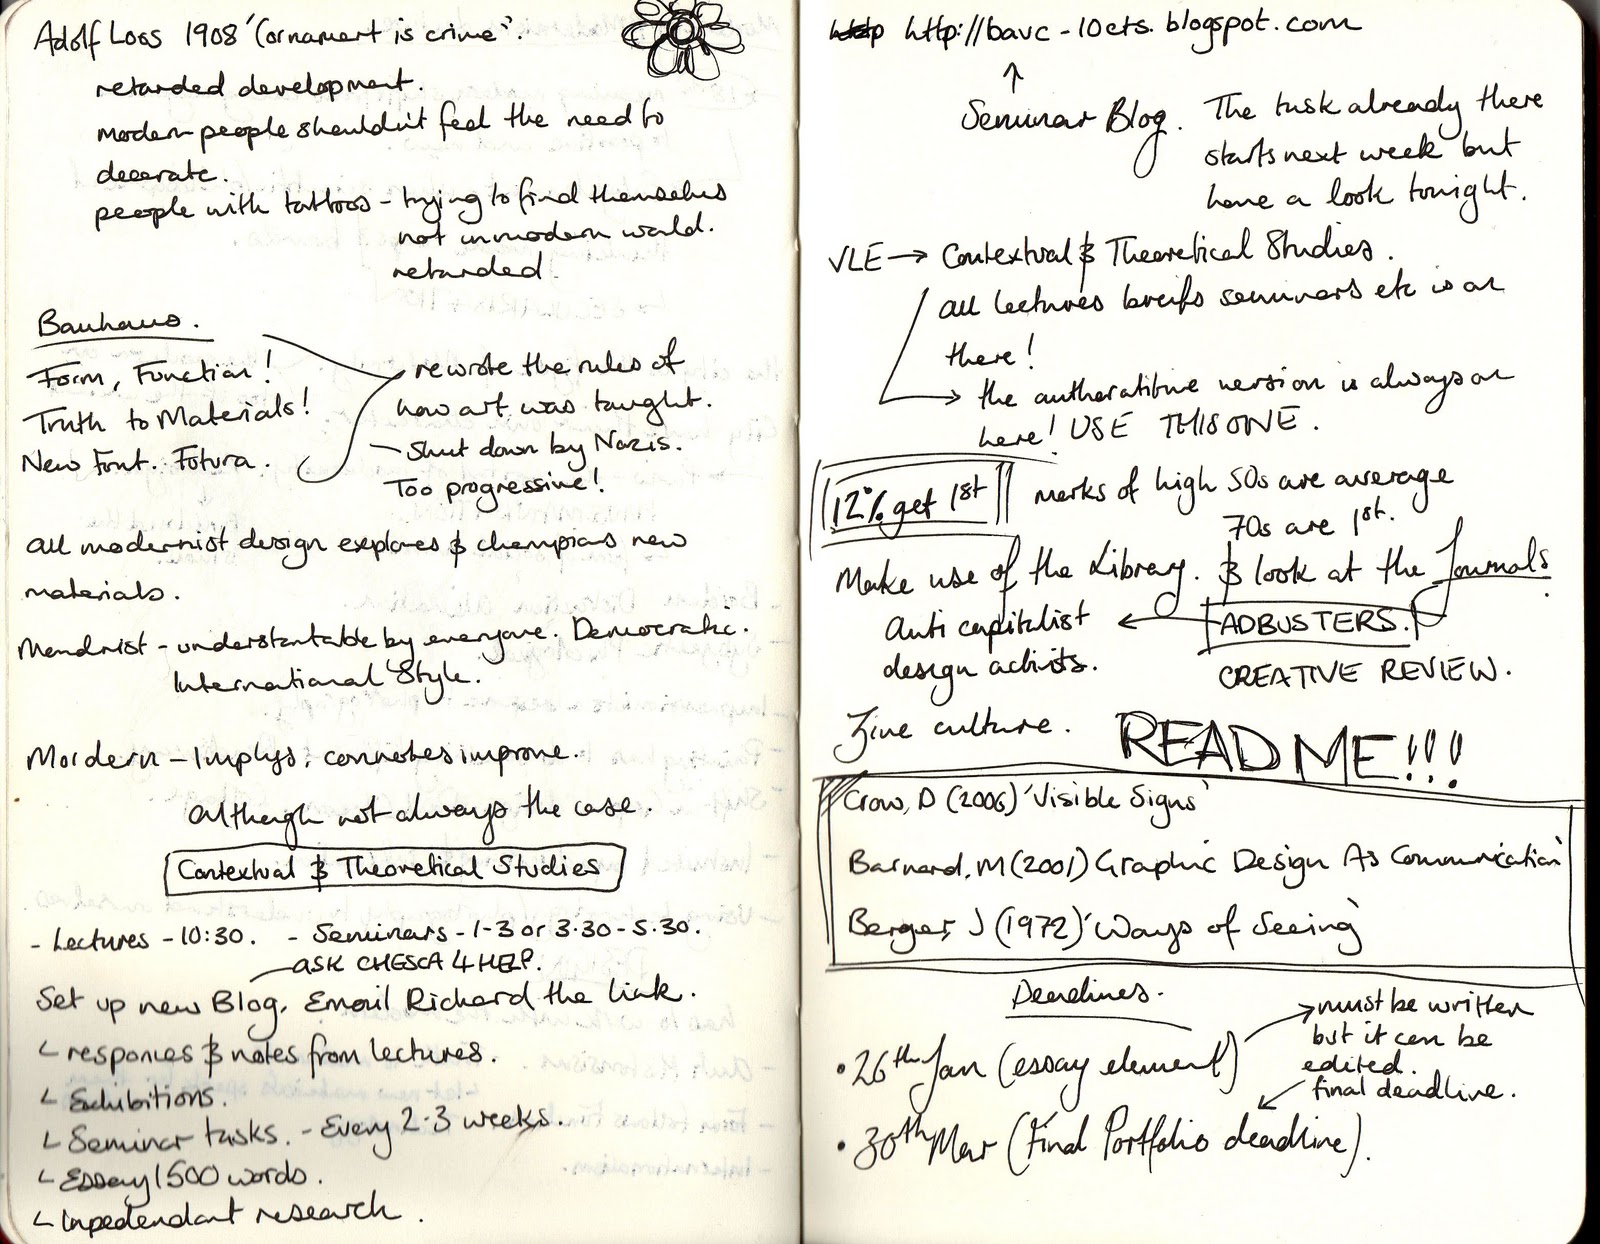 Adolf Loos 1908 '(ornament is crime".
retarded development.
modern people shouldn't feel the need to
decerate.
people with tattoos - trying to find themselves
not in modern world.
retarded
Bauhaus.
Form, Function!
Truth to Materials!
New Font. Futura.
rewrote the rules of
how art was taught.
- Shut down by Nazis.
Too progressive!
all modernist design explores & champions new
materials.
- understantable by everyone. Democratic.
International Style.
Mordern - Implys, connotes improve.
although not always the case.
Contextual & Theoretical Studies
- Lectures - 10:30. - Seminars - 1-3 or 3.30 - 5.30.
ASK CHESCA 4 HELP.
Set up new Blog. Email Richard the link.
responces & notes from lectures.
Exhibitions.
Seminar tasks. - Every 2-3 weeks.
Essay 1500 words.
Inpedendant research.
http://bavc-10cts.blogspot.com
↑
Seminar Blog. The task already there
starts next week but
have a look tonight.
VLE → Contextual & Theoretical Studies.
all lectures breifs seminars etc is on
there!
→ the autheratitive version is always on
here! USE THIS ONE.
12% get 1st marks of high 50s are average
70s are 1st.
Make use of the Library. & look at the Journals
anti capitalist ← ADBUSTERS.
design activists. CREATIVE REVIEW.
Zine culture. READ ME!!!
Crow, D (2006) 'Visible Signs'
Barnard, M (2001) Graphic Design As Communication'
Berger, J (1972) 'Ways of Seeing'
Deadlines.
→ must be written
but it can be
edited.
• 26th Jan (essay element)
final deadline.
• 30th Mar (Final Portfolio deadline).